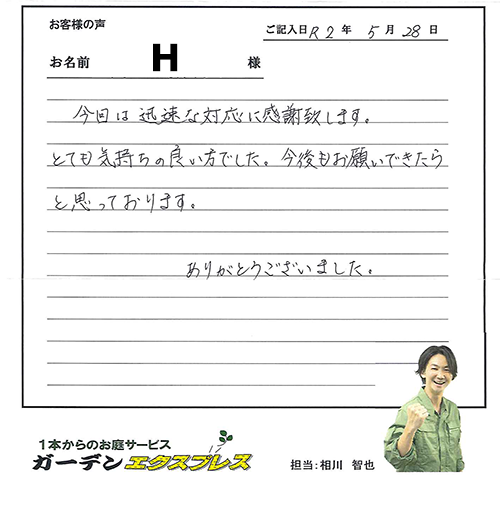 お客様の声
ご記入日R2年 5月28日
お名前 H 様
今回は迅速な対応に感謝致します。
とても気持ちの良い方でした。今後もお願いできたら
と思っております。
ありがとうございました。
1本からのお庭サービス
ガーデンエクスプレス
担当:相川 智也